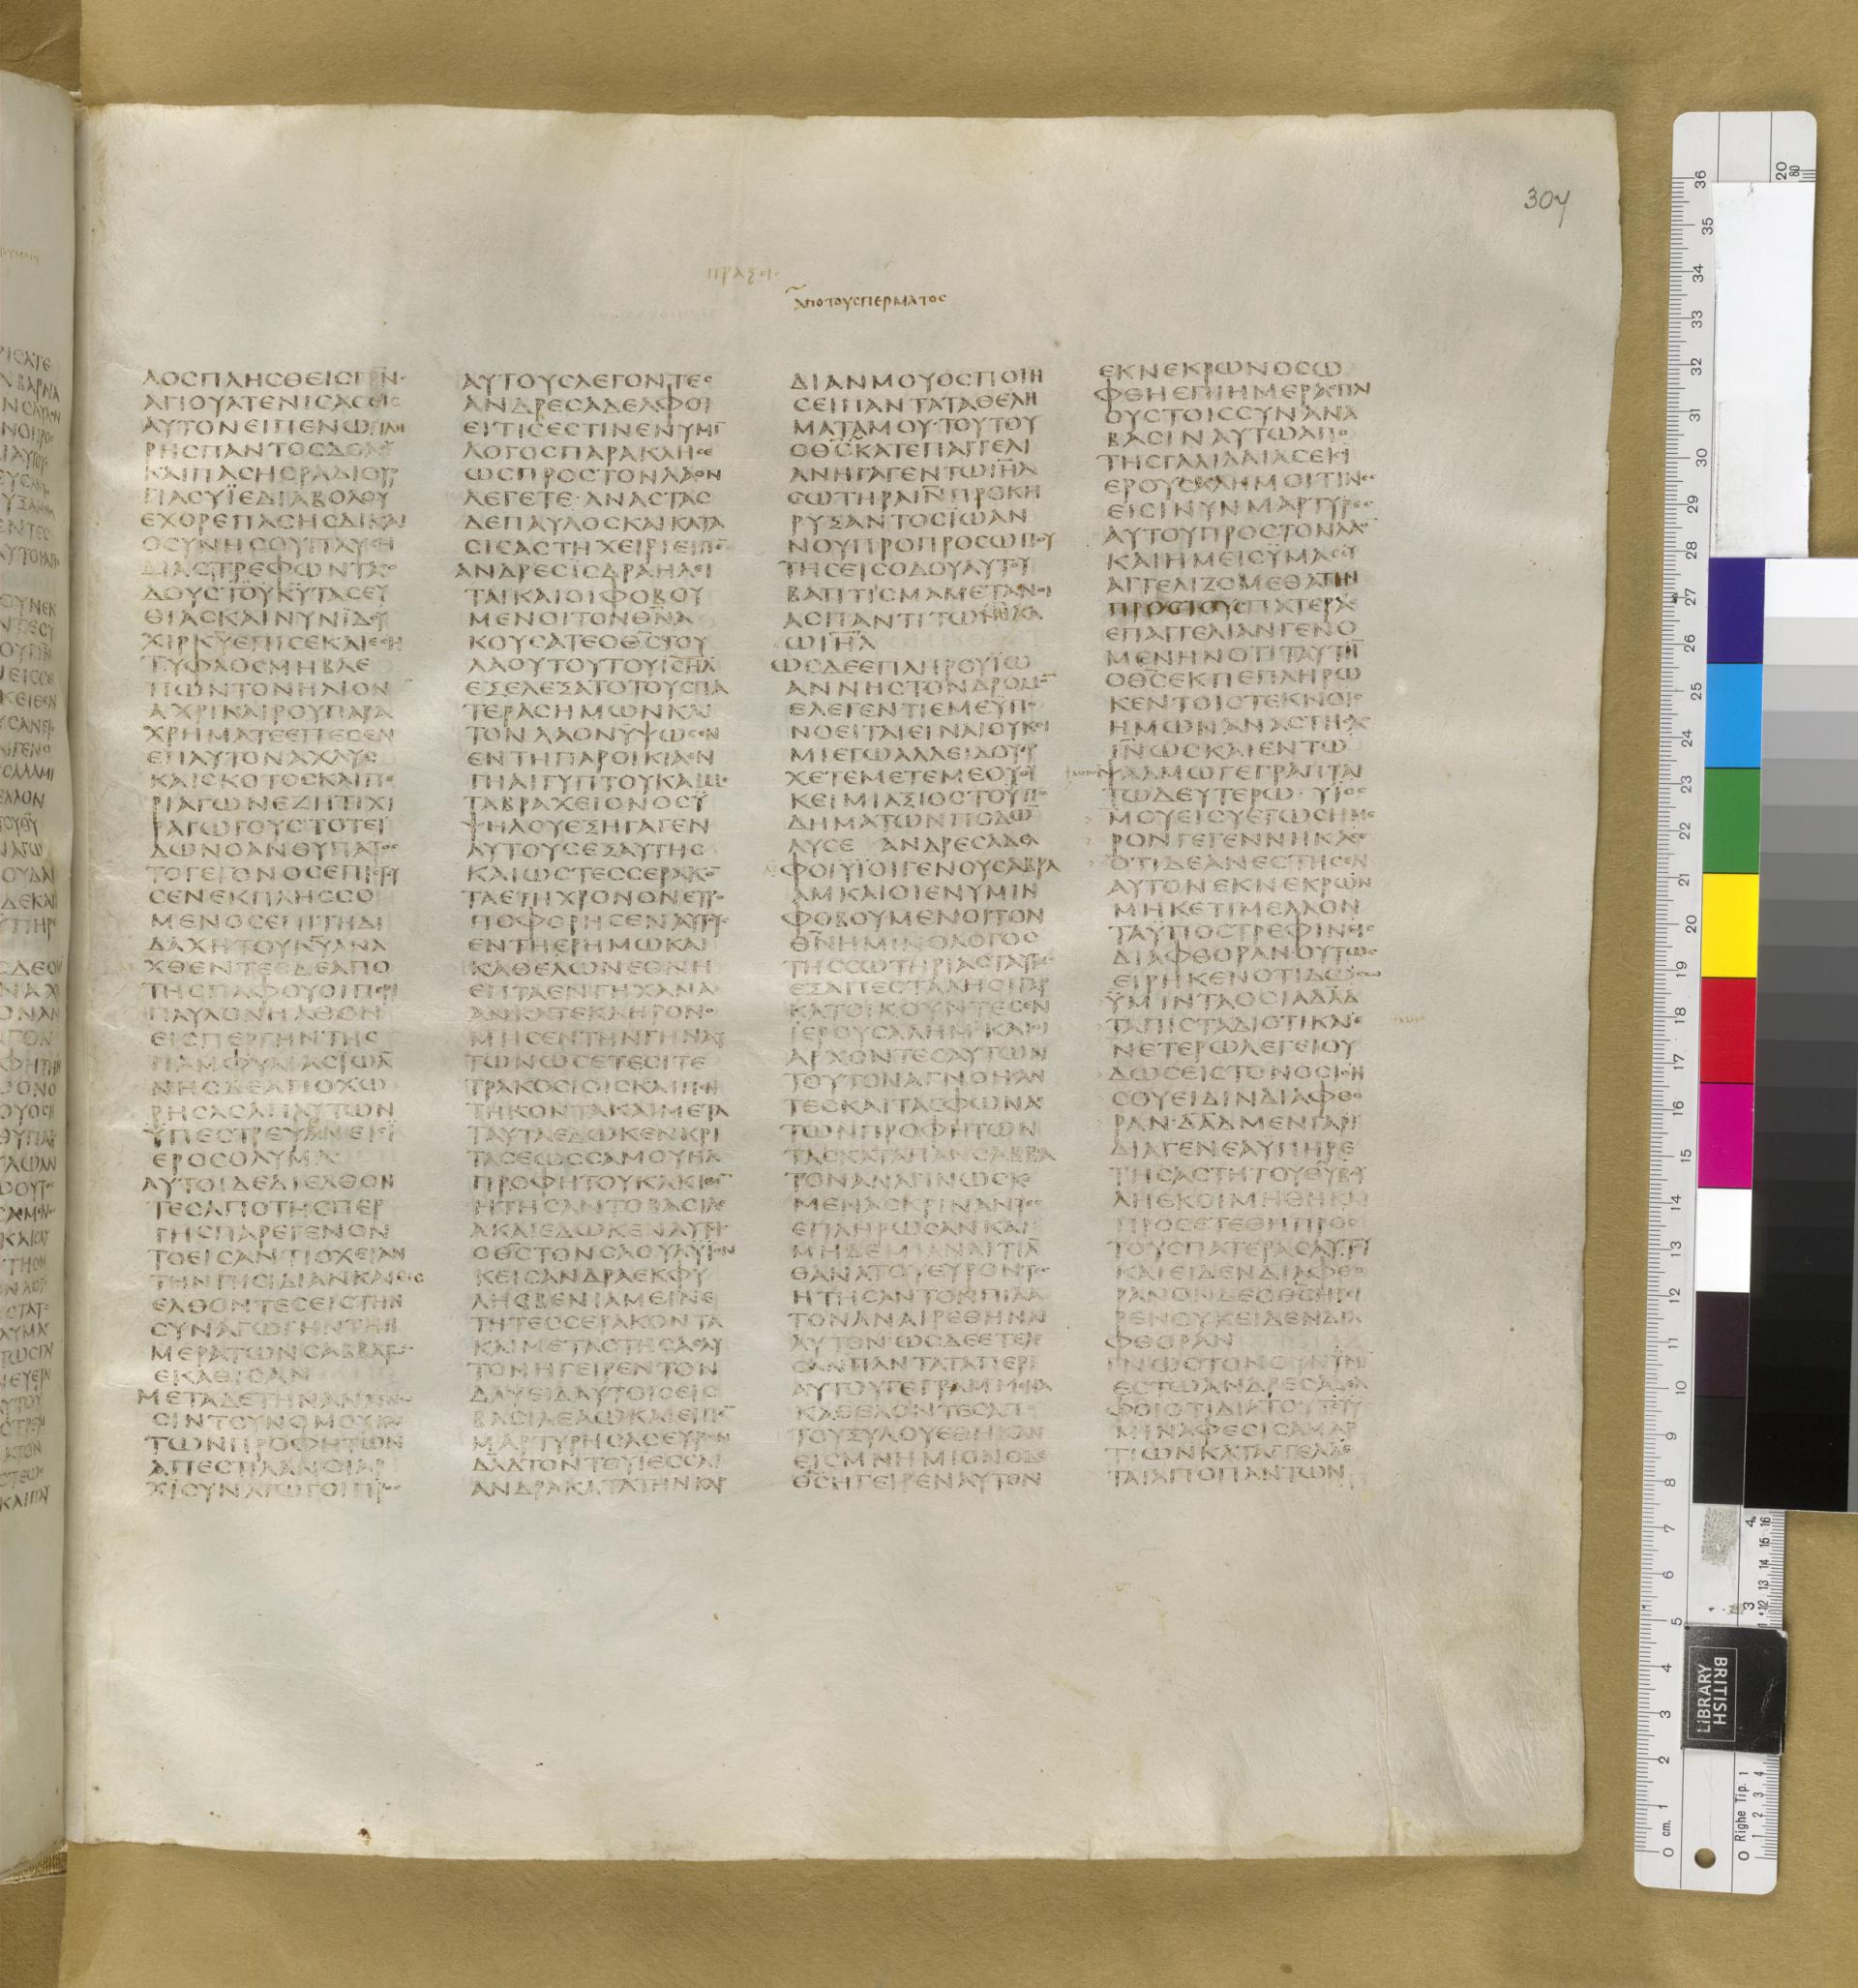 304
ΠΡΑΞΙϹ
ΑΠΟΤΟΥϹΠΕΡΜΑΤΟϹ
ΛΟϹΠΛΗϹΘΕΙϹΠΝϹ
ΑΓΙΟΥΑΤΕΝΙϹΑϹΕΙϹ
ΑΥΤΟΝΕΙΠΕΝΩΠΛΗ
ΡΗϹΠΑΝΤΟϹΔΟΛΟΥ
ΚΑΙΠΑϹΗϹΡΑΔΙΟΥΡ
ΓΙΑϹΥΪΕΔΙΑΒΟΛΟΥ
ΕΧΘΡΕΠΑϹΗϹΔΙΚΑΙ
ΟϹΥΝΗϹΟΥΠΑΥϹΗ
ΔΙΑϹΤΡΕΦΩΝΤΑϹΟ
ΔΟΥϹΤΟΥΚΥΤΑϹΕΥ
ΘΙΑϹΚΑΙΝΥΝΙΔΟΥ
ΧΙΡΚΥΕΠΙϹΕΚΑΙΕϹΗ
ΤΥΦΛΟϹΜΗΒΛΕ
ΠΩΝΤΟΝΗΛΙΟΝ
ΑΧΡΙΚΑΙΡΟΥΠΑΡΑ
ΧΡΗΜΑΤΕΕΠΕϹΕΝ
ΕΠΑΥΤΟΝΑΧΛΥϹ
ΚΑΙϹΚΟΤΟϹΚΑΙΠΕ
ΡΙΑΓΩΝΕΖΗΤΙΧΙ
ΡΑΓΩΓΟΥϹΤΟΤΕΪ
ΔΩΝΟΑΝΘΥΠΑΤΟϹ
ΤΟΓΕΓΟΝΟϹΕΠΙϹΤΕΥ
ϹΕΝΕΚΠΛΗϹϹΟ
ΜΕΝΟϹΕΠΙΤΗΔΙ
ΔΑΧΗΤΟΥΚΥΑΝΑ
ΧΘΕΝΤΕϹΔΕΑΠΟ
ΤΗϹΠΑΦΟΥΟΙΠΕΡΙ
ΠΑΥΛΟΝΗΛΘΟΝ
ΕΙϹΠΕΡΓΗΝΤΗϹ
ΠΑΜΦΥΛΙΑϹΪΩΑ
ΝΗϹΔΕΑΠΟΧΩ
ΡΗϹΑϹΑΠΑΥΤΩΝ
ΫΠΕϹΤΡΕΨΕΝΕΙϹΪ
ΕΡΟϹΟΛΥΜΑ
ΑΥΤΟΙΔΕΔΙΕΛΘΟΝ
ΤΕϹΑΠΟΤΗϹΠΕΡ
ΓΗϹΠΑΡΕΓΕΝΟΝ
ΤΟΕΙϹΑΝΤΙΟΧΕΙΑΝ
ΤΗΝΠΙϹΙΔΙΑΝΚΑΙΕΙϹ
ΕΛΘΟΝΤΕϹΕΙϹΤΗΝ
ϹΥΝΑΓΩΓΗΝΤΗΗ
ΜΕΡΑΤΩΝϹΑΒΒΑΤΩ
ΕΚΑΘΙϹΑΝ
ΜΕΤΑΔΕΤΗΝΑΝΑΓΝΩ
ϹΙΝΤΟΥΝΟΜΟΥΚΑΙ
ΤΩΝΠΡΟΦΗΤΩΝ
ΑΠΕϹΤΙΛΑΝΟΙΑΡ
ΧΙϹΥΝΑΓΩΓΟΙΠΡΟϹ
ΑΥΤΟΥϹΛΕΓΟΝΤΕϹ
ΑΝΔΡΕϹΑΔΕΛΦΟΙ
ΕΙΤΙϹΕϹΤΙΝΕΝΥΜΙ
ΛΟΓΟϹΠΑΡΑΚΛΗϹΕ
ΩϹΠΡΟϹΤΟΝΛΑΟΝ
ΛΕΓΕΤΕ·ΑΝΑϹΤΑϹ
ΔΕΠΑΥΛΟϹΚΑΙΚΑΤΑ
ϹΙϹΑϹΤΗΧΕΙΡΙΕΙΠΕ
ΑΝΔΡΕϹΙϹΔΡΑΗΛΙ
ΤΑΙΚΑΙΟΙΦΟΒΟΥ
ΜΕΝΟΙΤΟΝΘΝΑ
ΚΟΥϹΑΤΕΟΘϹΤΟΥ
ΛΑΟΥΤΟΥΤΟΥΙϹΗΛ
ΕΞΕΛΕΞΑΤΟΤΟΥϹΠΑ
ΤΕΡΑϹΗΜΩΝΚΑΙ
ΤΟΝΛΑΟΝΥΨΩϹΕΝ
ΕΝΤΗΠΑΡΟΙΚΙΑΕΝ
ΓΗΑΙΓΥΠΤΟΥΚΑΙΜΕ
ΤΑΒΡΑΧΕΙΟΝΟϹΥ
ΨΗΛΟΥΕΞΗΓΑΓΕΝ
ΑΥΤΟΥϹΕΞΑΥΤΗϹ
ΚΑΙΩϹΤΕϹϹΕΡΑΚΟ
ΤΑΕΤΗΧΡΟΝΟΝΕΤΡΟ
ΠΟΦΟΡΗϹΕΝΑΥΤΟΥϹ
ΕΝΤΗΕΡΗΜΩΚΑΙ
ΚΑΘΕΛΩΝΕΘΝΗ
ΕΠΤΑΕΝΓΗΧΑΝΑ
ΑΝΚΑΤΕΚΛΗΡΟΝΟ
ΜΗϹΕΝΤΗΝΓΗΝΑΥ
ΤΩΝΩϹΕΤΕϹΙΤΕ
ΤΡΑΚΟϹΙΟΙϹΚΑΙΠΕΝ
ΤΗΚΟΝΤΑΚΑΙΜΕΤΑ
ΤΑΥΤΑΕΔΩΚΕΝΚΡΙ
ΤΑϹΕΩϹϹΑΜΟΥΗΛ
ΠΡΟΦΗΤΟΥΚΑΚΙΘΕ
ΗΤΗϹΑΝΤΟΒΑϹΙΛΕ
ΑΚΑΙΕΔΩΚΕΝΑΥΤΟΙϹ
ΟΘϹΤΟΝϹΑΟΥΛΥΪΟΝ
ΚΕΙϹΑΝΔΡΑΕΚΦΥ
ΛΗϹΒΕΝΙΑΜΕΙΝΕ
ΤΗΤΕϹϹΕΡΑΚΟΝΤΑ
ΚΑΙΜΕΤΑϹΤΗϹΑϹΑΥ
ΤΟΝΗΓΕΙΡΕΝΤΟΝ
ΔΑΥΕΙΔΑΥΤΟΙϹΕΙϹ
ΒΑϹΙΛΕΑΩΚΑΙΕΙΠΕ
ΜΑΡΤΥΡΗϹΑϹΕΥΡΟΝ
ΔΑΔΤΟΝΤΟΥΙΕϹϹΑΙ
ΑΝΔΡΑΚΑΤΑΤΗΝΚΑΡ
ΔΙΑΝΜΟΥΟϹΠΟΙΗ
ϹΕΙΠΑΝΤΑΤΑΘΕΛΗ
ΜΑΤΑΜΟΥ·ΤΟΥΤΟΥ
ΟΘϹΚΑΤΕΠΑΓΓΕΛΙ
ΑΝΗΓΑΓΕΝΤΩΙΗΛ
ϹΩΤΗΡΑΙΝΠΡΟΚΗ
ΡΥΞΑΝΤΟϹΪΩΑΝ
ΝΟΥΠΡΟΠΡΟϹΩΠΟΥ
ΤΗϹΕΙϹΟΔΟΥΑΥΤΟΥ
ΒΑΠΤΙϹΜΑΜΕΤΑΝΟΙ
ΑϹΠΑΝΤΙΤΩΛΑ
ΩΙΗΛ
ΩϹΔΕΕΠΛΗΡΟΥΪΩ
ΑΝΝΗϹΤΟΝΔΡΟΜΟ
ΕΛΕΓΕΝΤΙΕΜΕΥΠΟ
ΝΟΕΙΤΑΙΕΙΝΑΙΟΥΚΕΙ
ΜΙΕΓΩΑΛΛΕΙΔΟΥΕΡ
ΧΕΤΕΜΕΤΕΜΕΟΥΟΥ
ΚΕΙΜΙΑΞΙΟϹΤΟΥΠΟ
ΔΗΜΑΤΩΝΠΟΔΩ
ΛΥϹΕ ΑΝΔΡΕϹΑΔΕΛ
ΦΟΙΥΪΟΙΓΕΝΟΥϹΑΒΡΑ
ΑΜΚΑΙΟΙΕΝΥΜΙΝ
ΦΟΒΟΥΜΕΝΟΙΤΟΝ
ΘΝΗΜΙΝΟΛΟΓΟϹ
ΤΗϹϹΩΤΗΡΙΑϹΤΑΥΤΗϹ
ΕΞΑΠΕϹΤΑΛΗΟΙΓΑΡ
ΚΑΤΟΙΚΟΥΝΤΕϹΕΝ
ΪΕΡΟΥϹΑΛΗΜΚΑΙΟΙ
ΑΡΧΟΝΤΕϹΑΥΤΩΝ
ΤΟΥΤΟΝΑΓΝΟΗϹΑΝ
ΤΕϹΚΑΙΤΑϹΦΩΝΑϹ
ΤΩΝΠΡΟΦΗΤΩΝ
ΤΑϹΚΑΤΑΠΑΝϹΑΒΒΑ
ΤΟΝΑΝΑΓΙΝΩϹΚΟ
ΜΕΝΑϹΚΡΙΝΑΝΤΕϹ
ΕΠΛΗΡΩϹΑΝΚΑΙ
ΜΗΔΕΜΙΑΝΑΙΤΙΑ
ΘΑΝΑΤΟΥΕΥΡΟΝΤΕϹ
ΗΤΗϹΑΝΤΟΝΠΙΛΑ
ΤΟΝΑΝΑΙΡΕΘΗΝΑΙ
ΑΥΤΟΝΩϹΔΕΕΤΕΛΕ
ϹΑΝΠΑΝΤΑΤΑΠΕΡΙ
ΑΥΤΟΥΓΕΓΡΑΜΜΕΝΑ
ΚΑΘΕΛΟΝΤΕϹΑΠΟ
ΤΟΥΞΥΛΟΥΕΘΗΚΑΝ
ΕΙϹΜΝΗΜΙΟΝΟΔΕ
ΘϹΗΓΕΙΡΕΝΑΥΤΟΝ
ΕΚΝΕΚΡΩΝΟϹΩ
ΦΘΗΕΠΙΗΜΕΡΑϹΠΛΙ
ΟΥϹΤΟΙϹϹΥΝΑΝΑ
ΒΑϹΙΝΑΥΤΩΑΠΟ
ΤΗϹΓΑΛΙΛΑΙΑϹΕΙϹΙ
ΕΡΟΥϹΑΛΗΜΟΙΤΙΝΕϹ
ΕΙϹΙΝΥΝΜΑΡΤΥΡΕϹ
ΑΥΤΟΥΠΡΟϹΤΟΝΛΑΟ
ΚΑΙΗΜΕΙϹΫΜΑϹΕΥ
ΑΓΓΕΛΙΖΟΜΕΘΑΤΗΝ
ΠΡΟϹΤΟΥϹΠΑΤΕΡΑϹ
ΕΠΑΓΓΕΛΙΑΝΓΕΝΟ
ΜΕΝΗΝΟΤΙΤΑΥΤΗ
ΟΘϹΕΚΠΕΠΛΗΡΩ
ΚΕΝΤΟΙϹΤΕΚΝΟΙϹ
ΗΜΩΝΑΝΑϹΤΗϹΑϹ
ΙΝΩϹΚΑΙΕΝΤΩ
ΨΑΛΜΩΓΕΓΡΑΠΤΑΙ
ΤΩΔΕΥΤΕΡΩ·ΥΪΟϹ
ΜΟΥΕΙϹΥΕΓΩϹΗΜΕ
ΡΟΝΓΕΓΕΝΝΗΚΑϹΕ
ΟΤΙΔΕΑΝΕϹΤΗϹΕΝ
ΑΥΤΟΝΕΚΝΕΚΡΩΝ
ΜΗΚΕΤΙΜΕΛΛΟΝ
ΤΑΫΠΟϹΤΡΕΦΙΝΕΙϹ
ΔΙΑΦΘΟΡΑΝ·ΟΥΤΩϹ
ΕΙΡΗΚΕΝΟΤΙΔΩϹΩ
ΫΜΙΝΤΑΟϹΙΑΔΑΔ
ΤΑΠΙϹΤΑΔΙΟΤΙΚΑΙΕ
ΝΕΤΕΡΩΛΕΓΕΙΟΥ
ΔΩϹΕΙϹΤΟΝΟϹΙΟΝ
ϹΟΥΕΙΔΙΝΔΙΑΦΘΟ
ΡΑΝ·ΔΑΔΜΕΝΓΑΡΙ
ΔΙΑΓΕΝΕΑΫΠΗΡΕ
ΤΗϹΑϹΤΗΤΟΥΘΥΒΟΥ
ΛΗΕΚΟΙΜΗΘΗΚΑΙ
ΠΡΟϹΕΤΕΘΗΠΡΟϹ
ΤΟΥϹΠΑΤΕΡΑϹΑΥΤΟΥ
ΚΑΙΕΙΔΕΝΔΙΑΦΘΟ
ΡΑΝΟΝΔΕΟΘϹΗΓΙ
ΡΕΝΟΥΚΕΙΔΕΝΔΙΑ
ΦΘΟΡΑΝ
ΓΝΩϹΤΟΝΟΥΝΥΜΙ
ΕϹΤΩΑΝΔΡΕϹΑΔΕΛ
ΦΟΙΟΤΙΔΙΑΤΟΥΤΟΥΥ
ΜΙΝΑΦΕϹΙϹΑΜΑΡ
ΤΙΩΝΚΑΤΑΓΓΕΛΛΕ
ΤΑΙΑΠΟΠΑΝΤΩΝ
BRITISH
LIBRARY